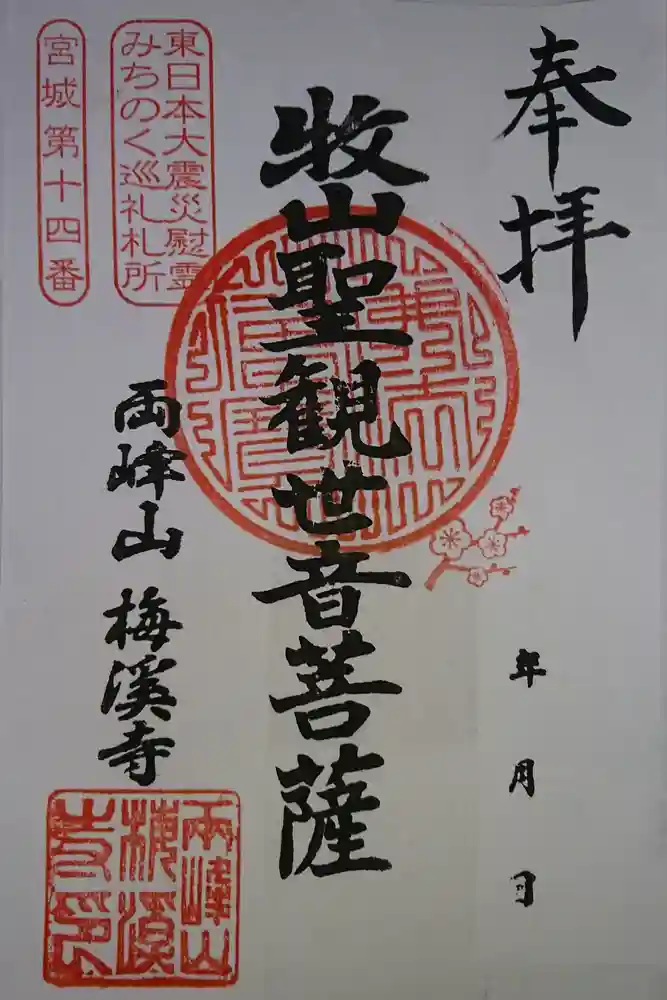 奉拝
年 月 日
牧山聖観世音菩薩
東日本大震災慰霊
みちのく巡礼札所
宮城第十四番
両峰山 梅溪寺
両峰山
梅溪
寺印